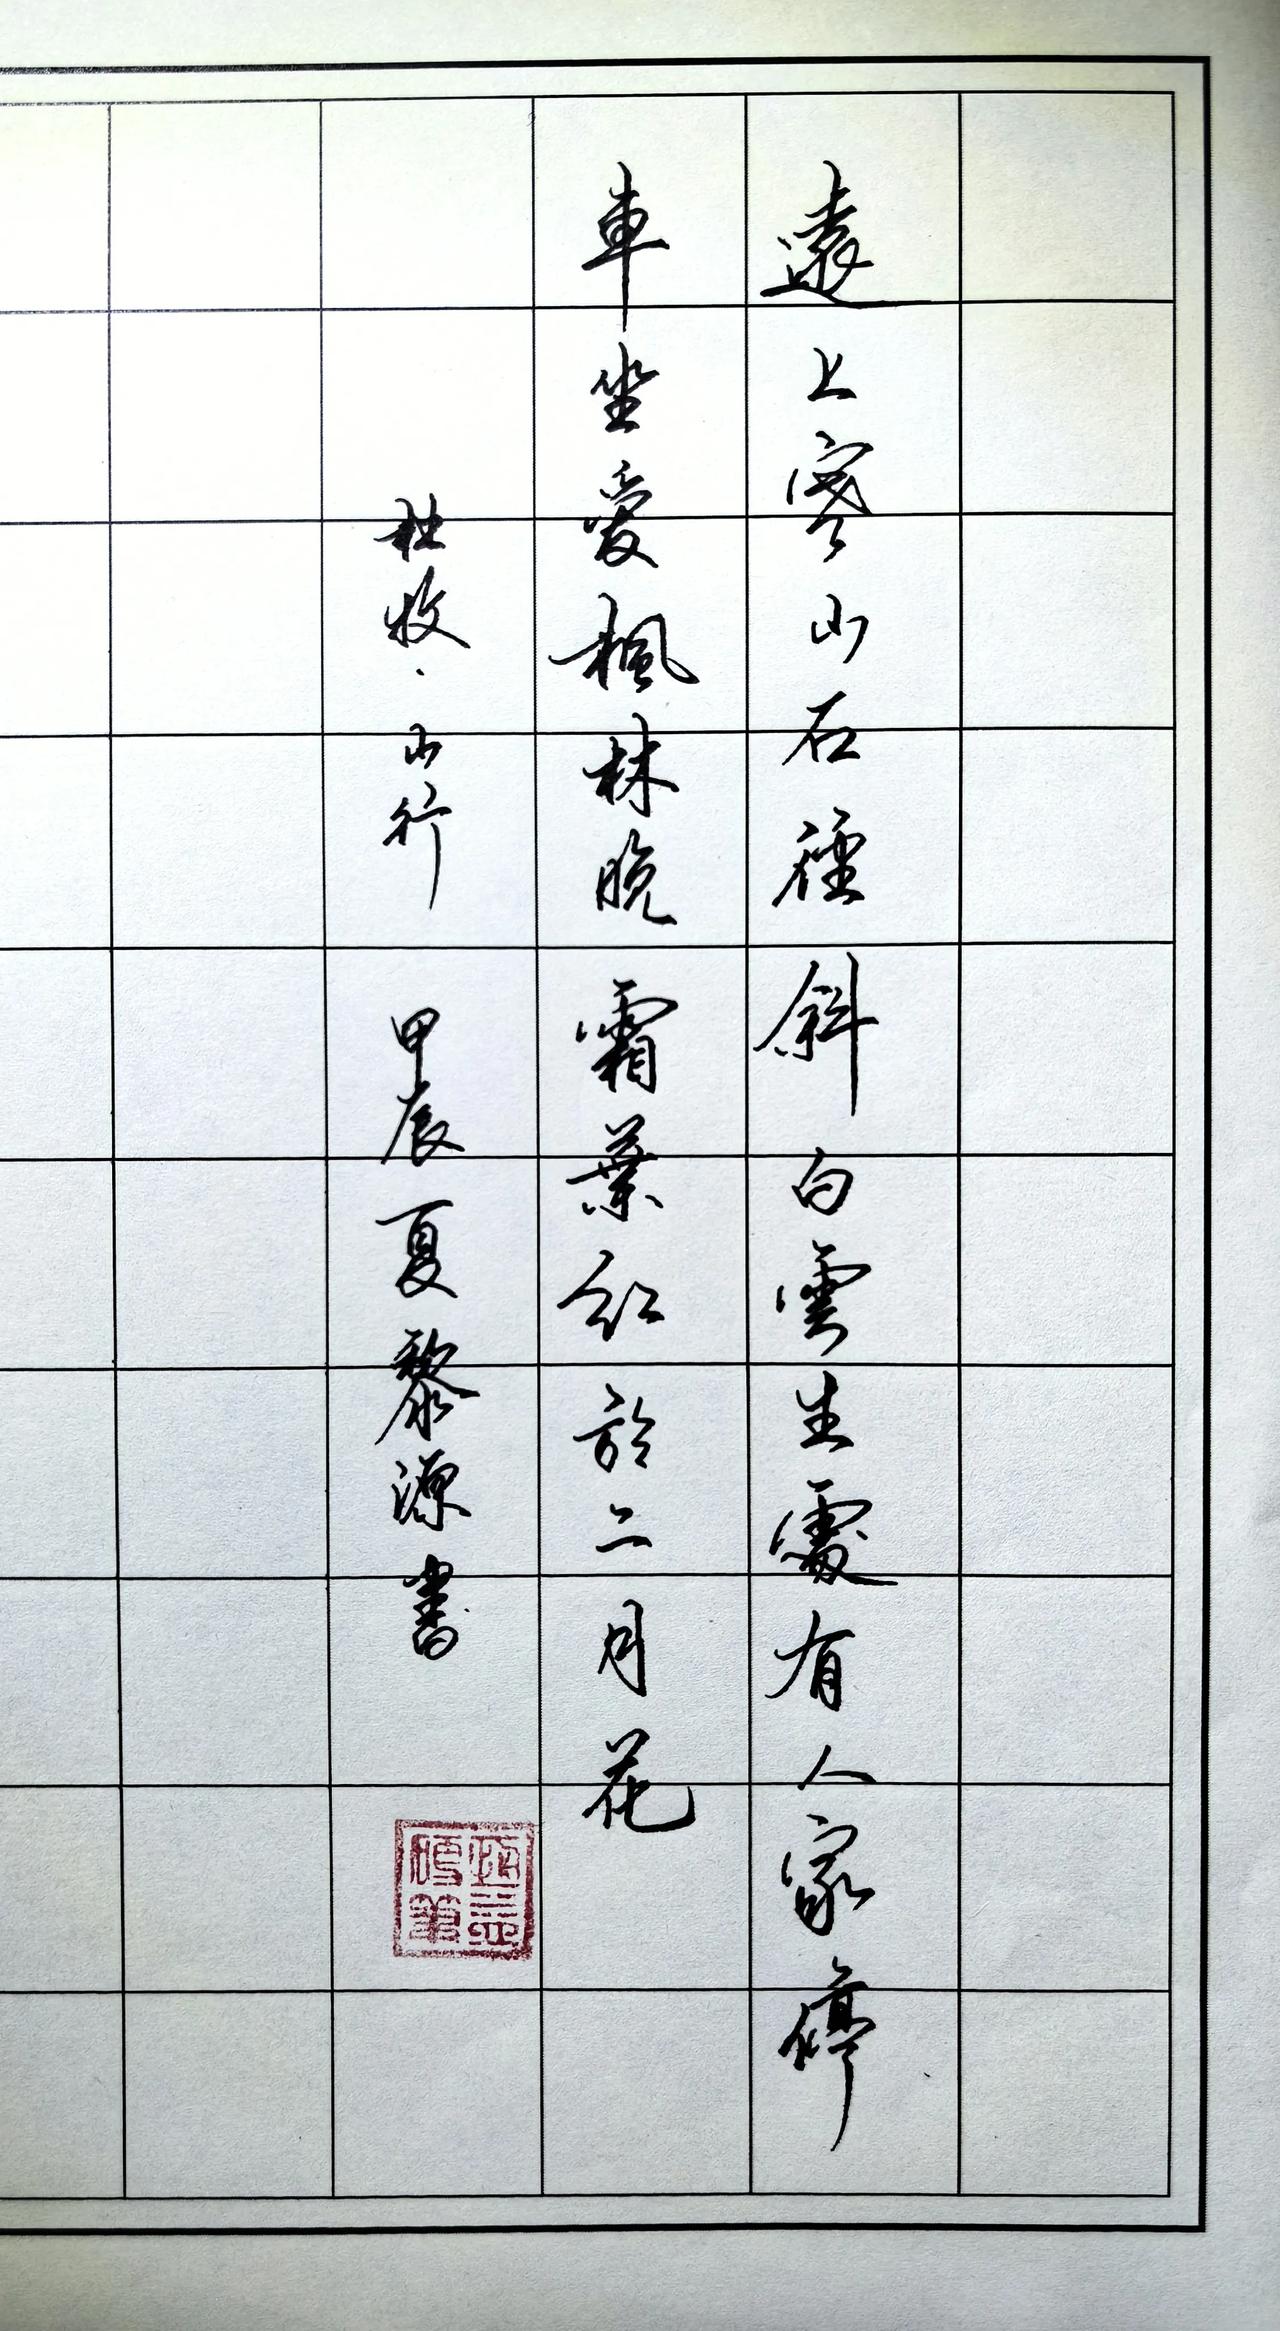 遠上寒山石徑斜白雲生處有人家停
車坐愛楓林晚霜葉紅於二月花
杜牧·山行 甲辰夏黎源書